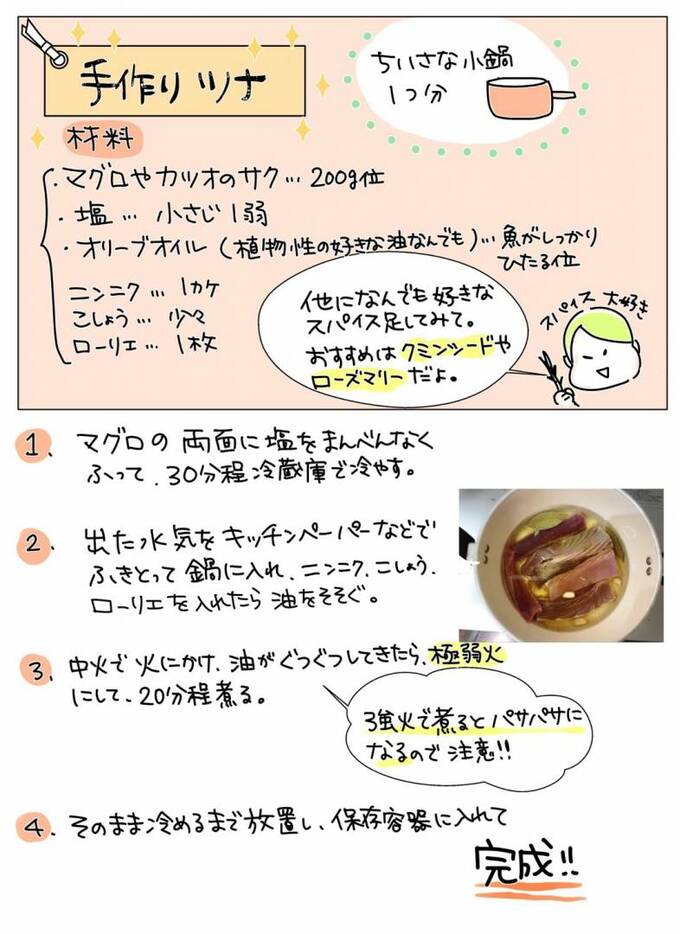 手作りツナ
ちいさな小鍋
1つ分
材料
・マグロやカツオのサク… 200g位
・塩… 小さじ1弱
・オリーブオイル (植物性の好きな油なんでも)… 魚がしっかり
ひたる位
ニンニク… 1カケ
こしょう… 少々
ローリエ… 1枚
他になんでも好きな
スパイス足してみて。
おすすめはクミンシードや
ローズマリーだよ。
スパイス大好き
1、マグロの両面に塩をまんべんなく
ふって、30分程冷蔵庫で冷やす。
2、出た水気をキッチンペーパーなどで
ふきとって鍋に入れ、ニンニク、こしょう、
ローリエを入れたら油をそそぐ。
3、中火で火にかけ、油がぐつぐつしてきたら、極弱火
にして、20分程煮る。
強火で煮るとパサパサに
なるので注意!!
4、そのまま冷めるまで放置し、保存容器に入れて
完成!!